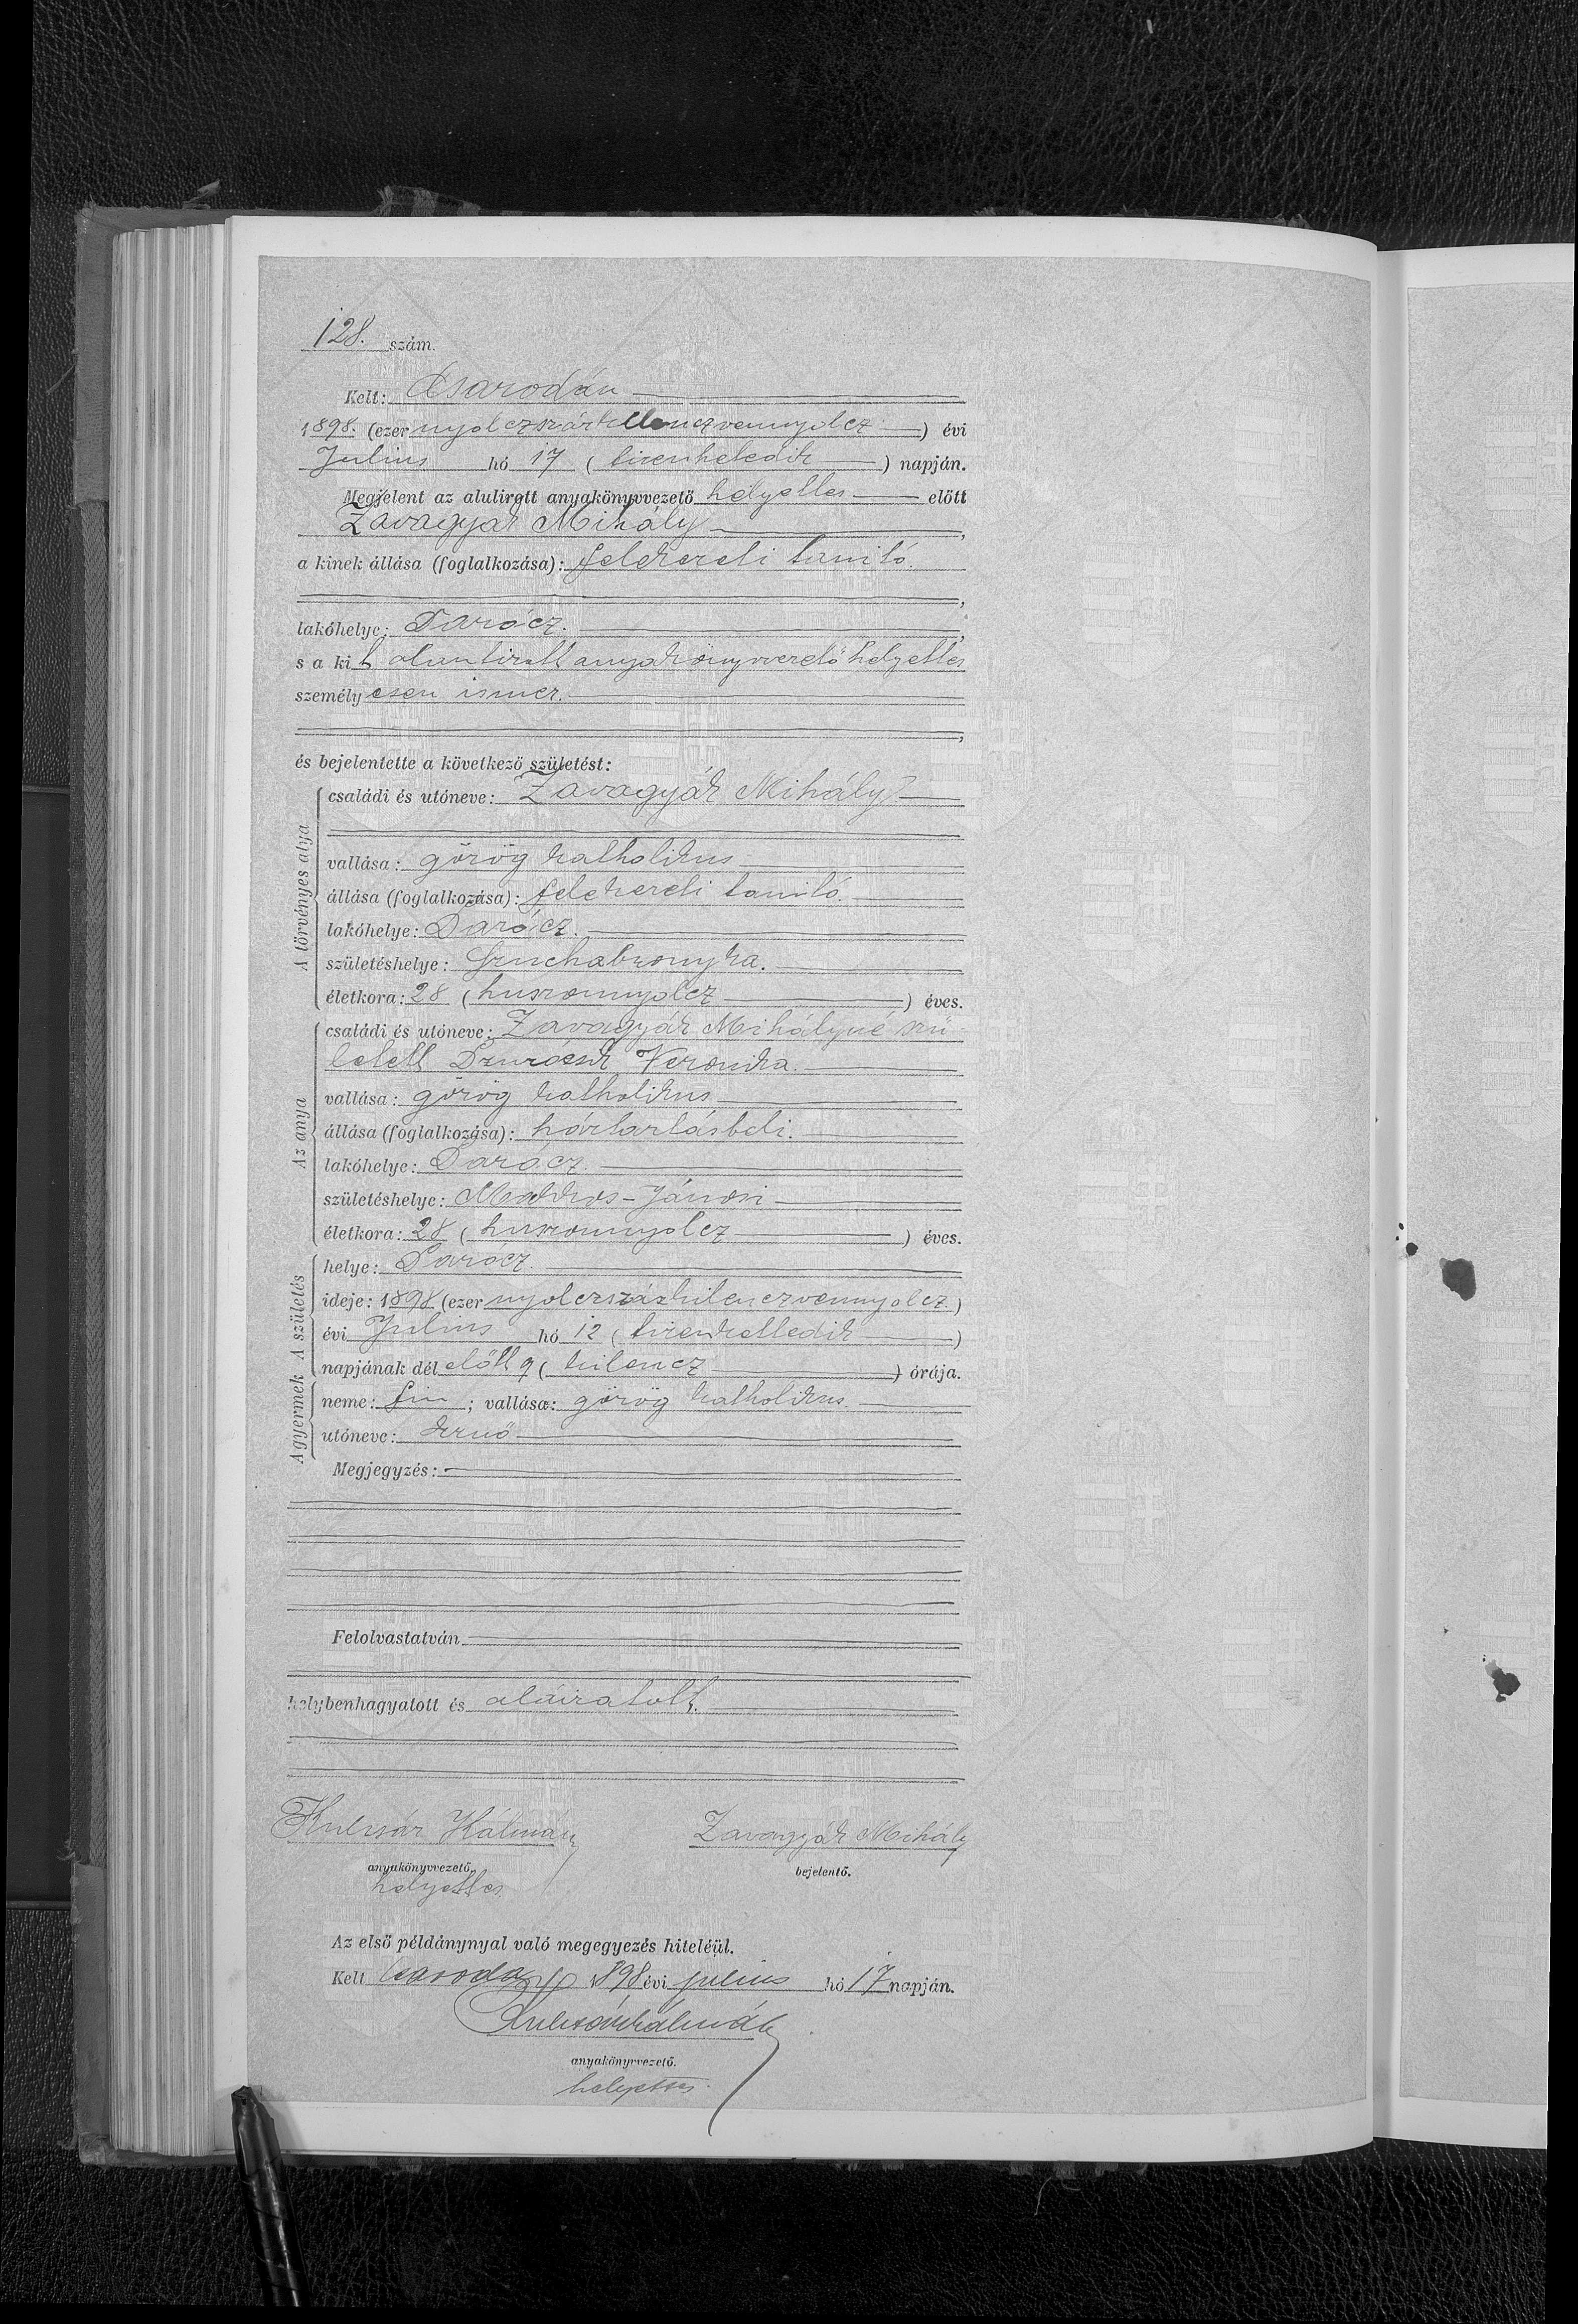 128. szám.
Kelt: Csarodán
1898. (ezer nyolczszázkilenczvennyolcz) évi
Julius hó 17 (tizenhetedik) napján.
Megjelent az alulirott anyakönyvvezető helyettes előtt
Zavagyák Mihály,
a kinek állása (foglalkozása): felekezeti tanitó.
lakóhelye: Darócz.
s a kit alantirott anyakönyvvezető helyettes
személyesen ismer.
és bejelentette a következő születést:
A törvényes atya
családi és utóneve: Zavagyák Mihály
vallása: görög katholikus
állása (foglalkozása): felekezeti tanitó.
lakóhelye: Darócz.
születéshelye: Szuchabronyka.
életkora: 28 (huszonnyolcz) éves.
Az anya
családi és utóneve: Zavagyák Mihályné szü-
letett Veronika.
vallása: görög katholikus
állása (foglalkozása): háztartásbeli.
lakóhelye: Darócz.
születéshelye: Makkos-Jánosi
életkora: 28 (huszonnyolcz) éves.
A születés
helye: Darócz.
ideje: 1898 (ezer nyolczszázkilenczvennyolcz.)
évi Julius hó 12 (tizenkettedik)
napjának délelőtt 9 (kilencz) órája.
A gyermek
neme: fiu; vallása: görög katholikus.
utóneve: Ernő
Megjegyzés:
Felolvastatván
helybenhagyatott és aláiratott.
Kulcsár Kálmán Zavagyák Mihály
anyakönyvvezető. bejelentő.
helyettes.
Az első példánynyal való megegyezés hiteléül.
Kelt Csaroda 1898 évi julius hó 17 napján.
Kulcsár Kálmán
anyakönyvvezető.
helyettes.